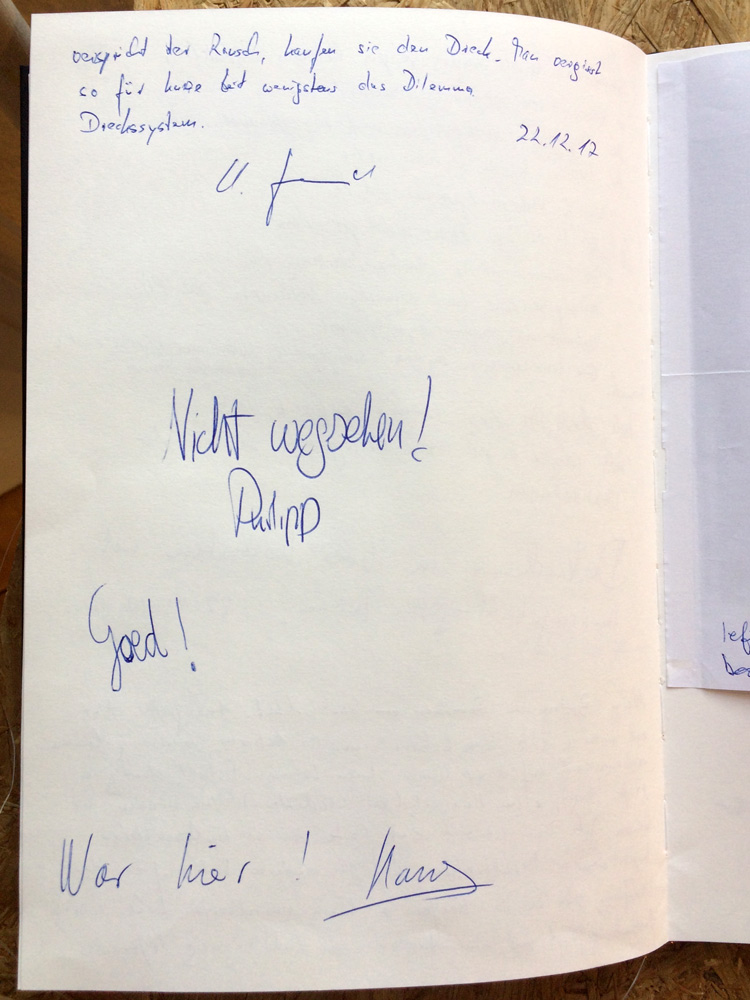 verspricht der Rausch, kaufen sie den Dreck. Man vergisst
so für kurze Zeit wenigstens das Dilemma
Dreckssystem.
22.12.17
Nicht wegsehen!
Philipp
Goed!
War hier!